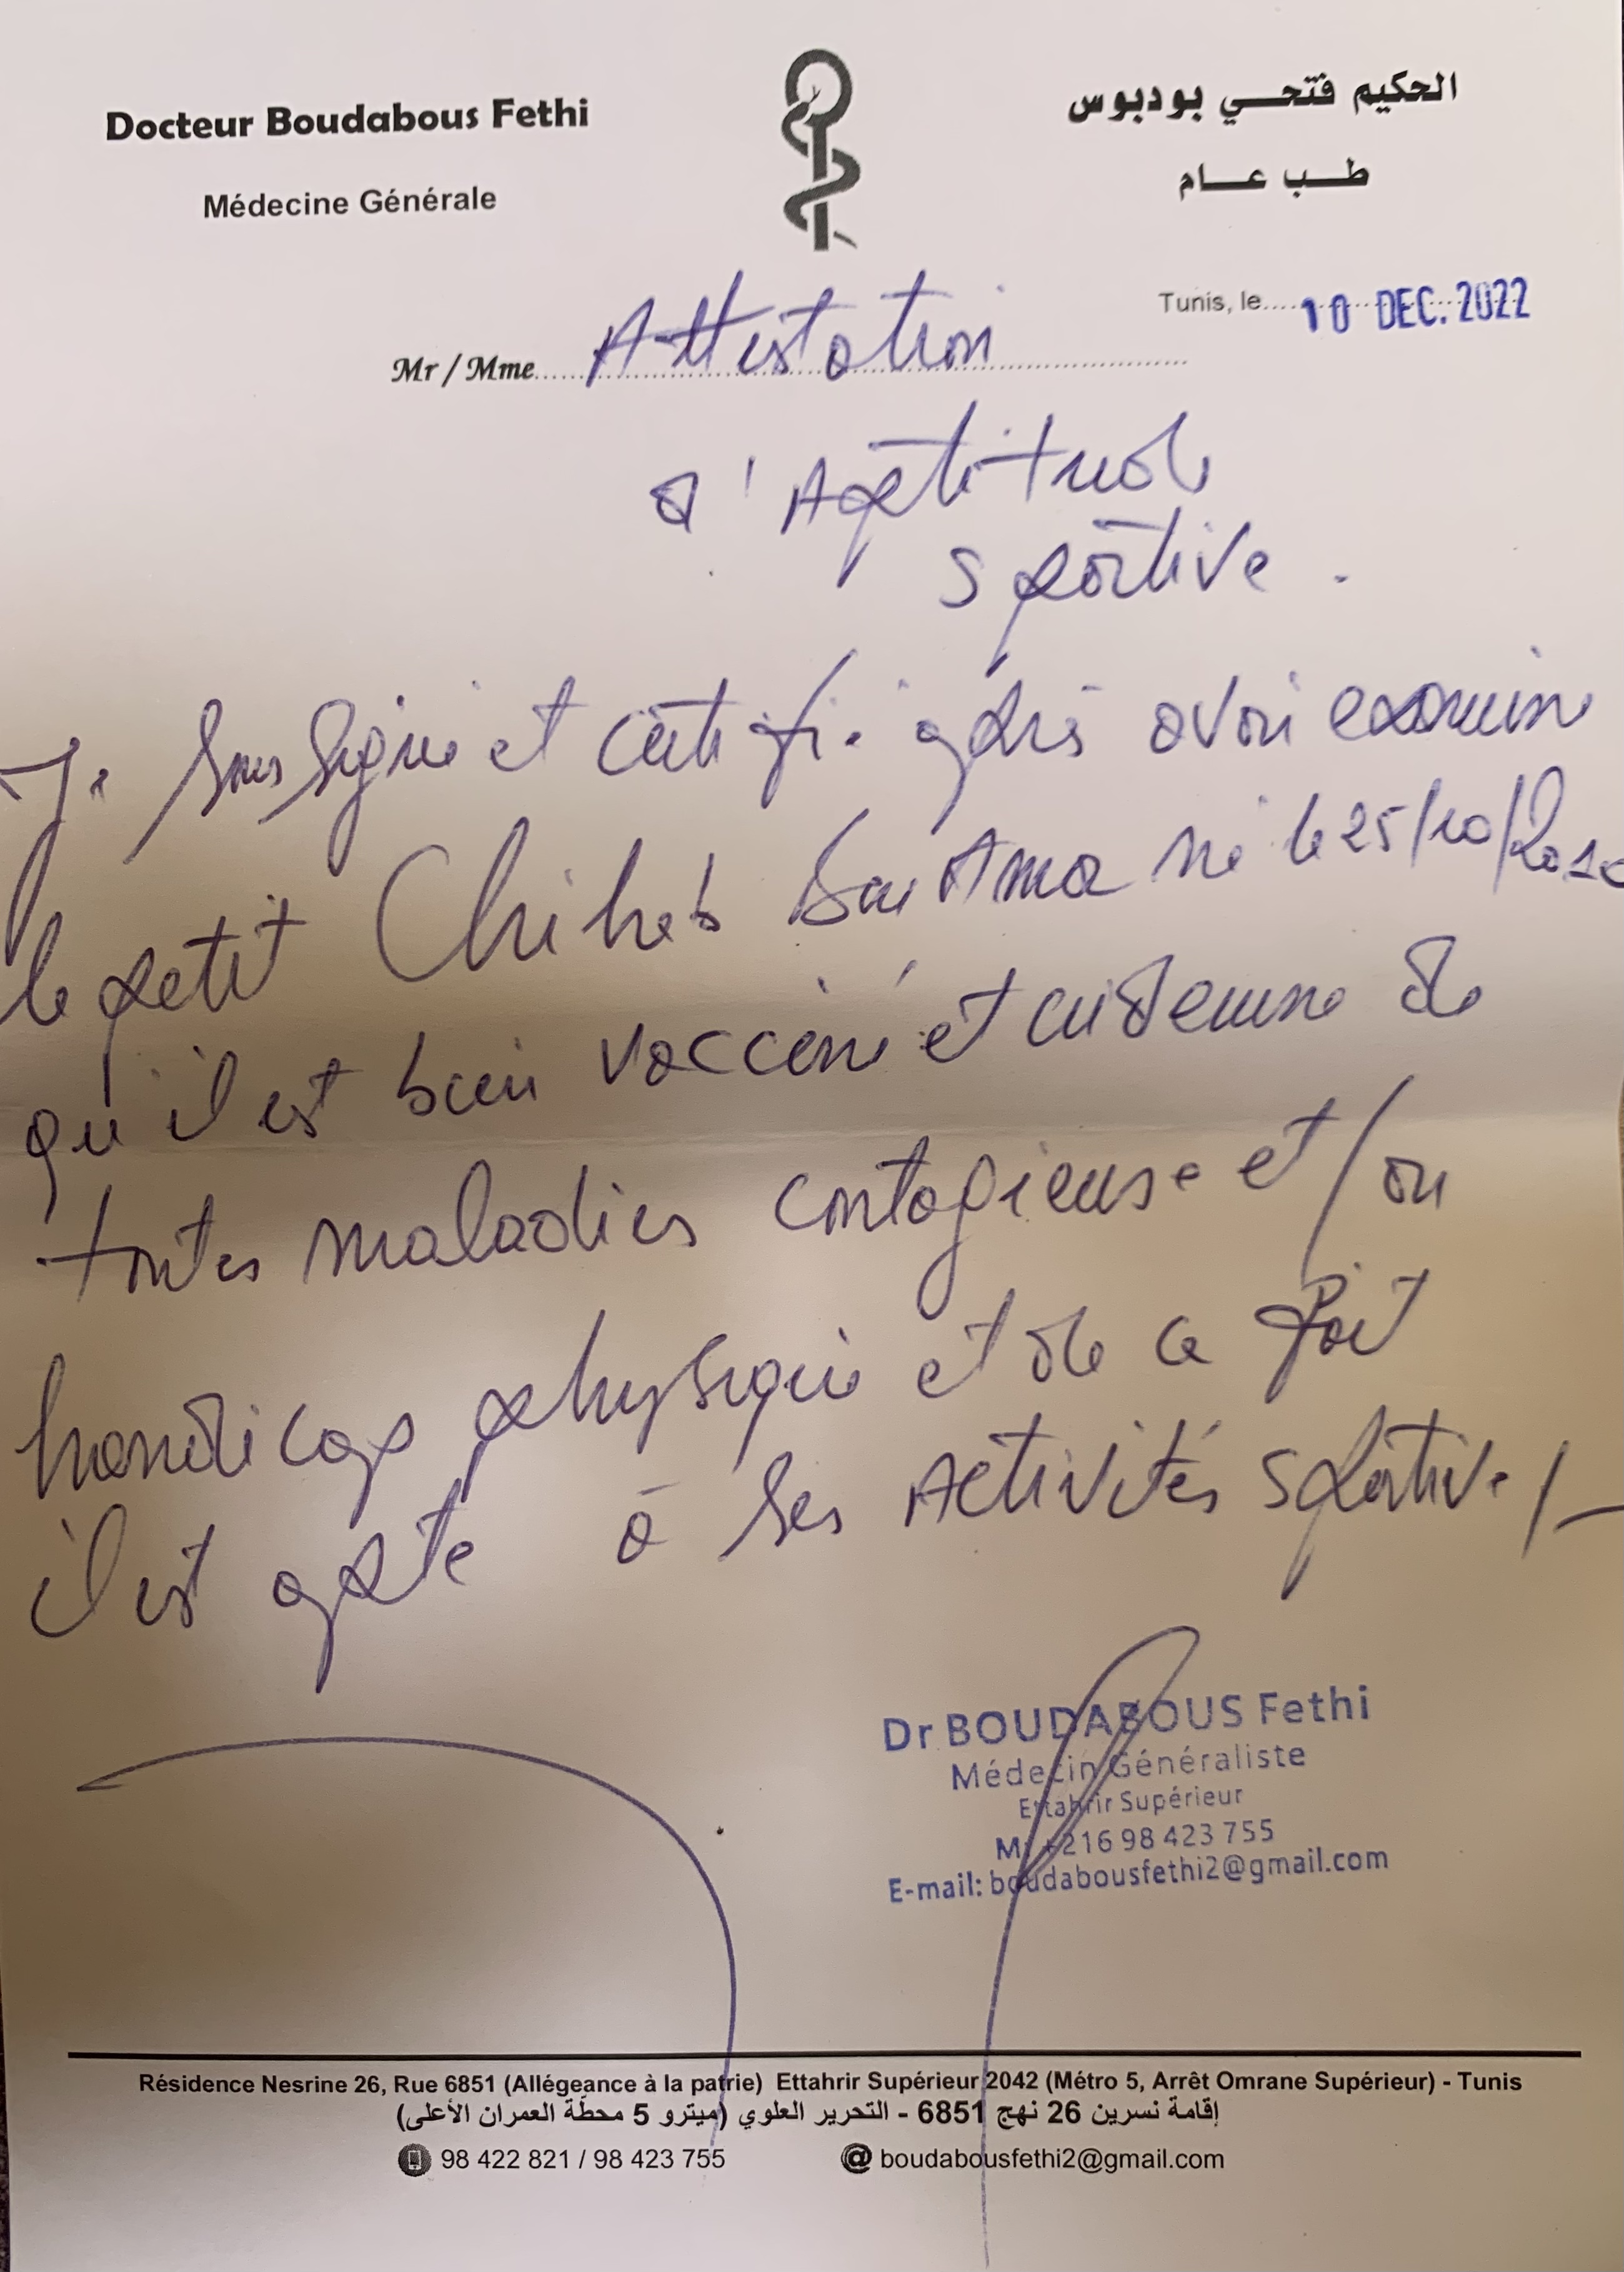 Docteur Boudabous Fethi
Médecine Générale
الحكيم فتحي بودبوس
طب عام
Tunis, le 10 DEC. 2022
Mr / Mme Attestation
d'Aptitude
sportive.
Je soussigné et certifie après avoir examiné
le petit Chiheb Ben Amor né le 25/10/201
qu'il est bien vacciné et indemne de
toutes maladies contagieuse et/ou
handicap physique et de ce fait
il est apte à ses Activités sportive/-
Dr BOUDABOUS Fethi
Médecin Généraliste
Ettahrir Supérieur
M: +216 98 423 755
E-mail: boudabousfethi2@gmail.com
Résidence Nesrine 26, Rue 6851 (Allégeance à la patrie) Ettahrir Supérieur 2042 (Métro 5, Arrêt Omrane Supérieur) - Tunis
إقامة نسرين 26 نهج 6851 - التحرير العلوي (ميترو 5 محطّة العمران الأعلى)
98 422 821 / 98 423 755 @ boudabousfethi2@gmail.com